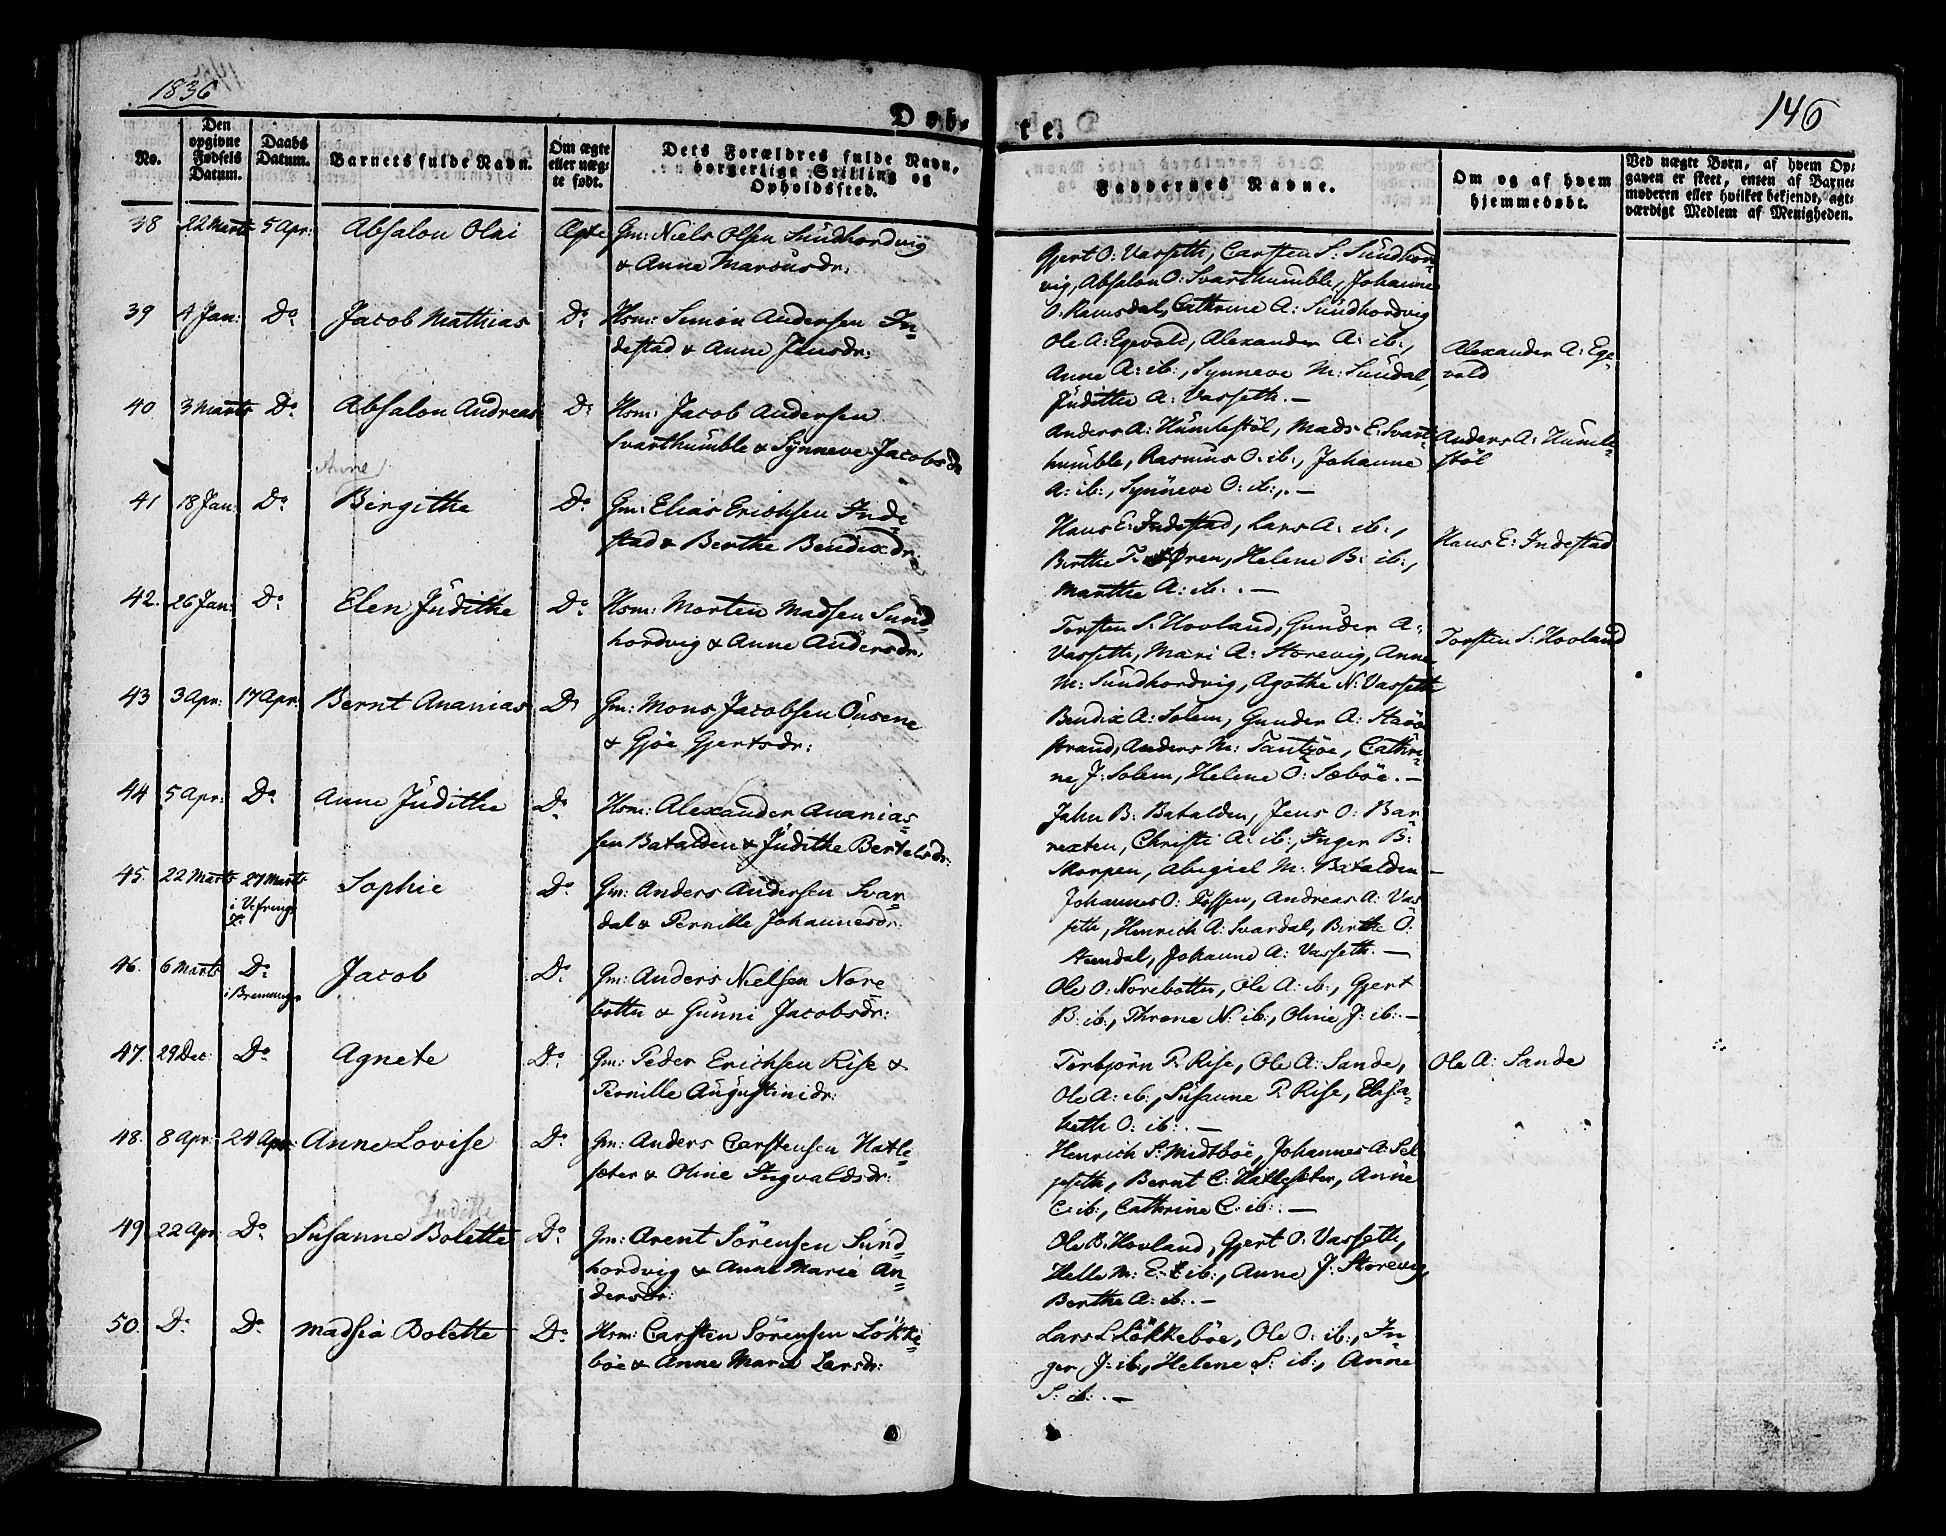 1836
146
Døb- te.
No.
Den opgivne Fødsels Datum.
Daabs Datum.
Barnets fulde Navn.
Om ægte eller uæg- te født.
Dets Forældres fulde Navn, borgerlige Stilling og Opholdssted.
Faddernes Navne.
Om og af hvem hjemmedøbt.
Ved uægte Børn, af hvem Op- gaven er skeet, enten af Barne- moderen eller hvilket bekjendt, agt- værdigt Medlem af Menigheden.
38 22 Marts 5 Apr: Absalon Olai Ægte Gm: Niels Olsen Sündhordvig
& Anne Marcusdr:
Gjert O: Vasseth, Carsten S: Sündhord-
vig, Absalon O: Svarthumble, Johanne
O: Ramsdal, Cathrine A: Sündhordvig
39 4 Jan: Do Jacob Mathias Do Hsm: Simon Andersen In-
destad & Anne Jensdr:
Ole A: Egevold, Alexander A: ib:,
Anne A: ib:, Synneve M: Sündal,
Judithe A: Vasseth. —
Alexander A: Ege-
vold
40 3 Marts Do Absalon Andreas Do Hsm: Jacob Andersen
Svarthumble & Synneve Jacobsdr
Anders A: Humlestöl, Mads E: Svart-
humble, Rasmus O: ib:, Johanne
A: ib:, Synneve O: ib:. —
Anders A: Humle-
stöl
Anne
41 18 Jan: Do Birgithe Do Gm: Elias Erichsen Inde
stad & Berthe Bendixdr:
Hans E: Indestad, Lars A: ib:,
Birthe T: Ören, Helene B: ib:,
Marthe A: ib: . —
Hans E: Indestad
42. 26 Jan: Do Elen Judithe Do Hsm: Morten Madsen Sünd-
hordvig & Anne Andersdr:
Torsten S: Hovland, Gunder A:
Vasseth, Mari A: Storevig, Anne
M: Sündhordvig, Agothe N: Vasseth
Torsten S: Hovland
43 3 Apr: 17 Apr: Bernt Ananias Do Gm: Mons Jacobsen Öusene
& Gjöe Gjertsdr:
Bendix A: Solem, Gunder A:
strand, Anders M: Tantzöe, Cathri-
ne J: Solem, Helene O: Sæböe. —
44 5 Apr: Do Anne Judithe Do Hsm: Alexander Ananias-
sen Batalden & Judithe Bertelsdr:
Jahn B: Batalden, Jens O: Bar-
rexten, Christi A: ib:, Inger B:
Skorpen, Abegiel M: Batalden —
45. 22 Marts 27 Marts Sophie Do Gm: Anders Andersen Svar-
i Vefring
dal & Pernille Johannesdr:
Johannes O: Fossen, Andreas A: Vas
seth, Henrich A: Svardal, Birthe O:
Stendal, Johanne A: Vasseth. —
46. 6 Marts Do Jacob Do Gm: Anders Nielsen Nore
i Bremanger
botten & Gunni Jacobsdr:
Ole O: Norebotten, Ole A: ib:, Gjert
B: ib:, Throne N: ib:, Oline J: ib:. —
47. 29 Dec: Do Agnete Do Gm: Peder Erichsen Rise &
Pernille Augustinidr:
Torbjörn P: Rise, Ole A: Sande,
Ole A: ib:, Susanne P: Rise, Elisa-
beth O: ib: . —
Ole A: Sande
48. 8 Apr: 24 Apr: Anne Lovise Do Gm: Anders Carstensen Hatle-
sæter & Oline Ingvaldsdr:
Henrich S: Midtböe, Johannes A: Sel
seth, Bernt C: Hatlesæter, Anne
C: ib:, Cathrine C: ib: . —
Judithe
49 22 Apr: Do Susanne Bolette Do Gm: Arent Sörensen Sünd-
hordvig & Anne Marie An-
dersdr:
Ole B: Hovland, Gjert O: Vasseth,
Helle M: E: ib:, Anne J: Storevig,
Berthe A: ib: . —
50. Do Do Madsia Bolette Do Hsm: Carsten Sörensen Lökke-
böe & Anne Maria Larsdr:
Lars L: Lökkeböe, Ole O: ib:, In-
ger J: ib:, Helene S: ib:, Anne
S: ib: . —